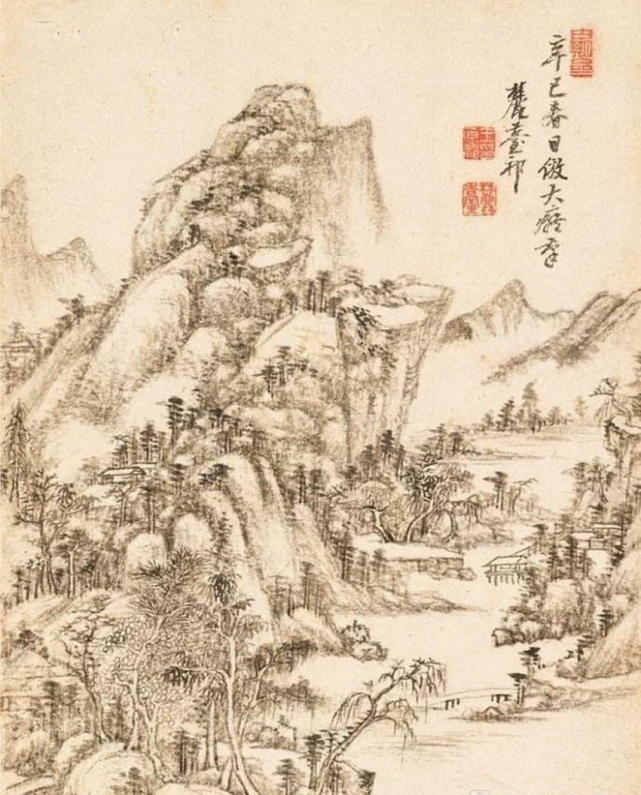 辛巳春日倣大癡筆
麓臺祁